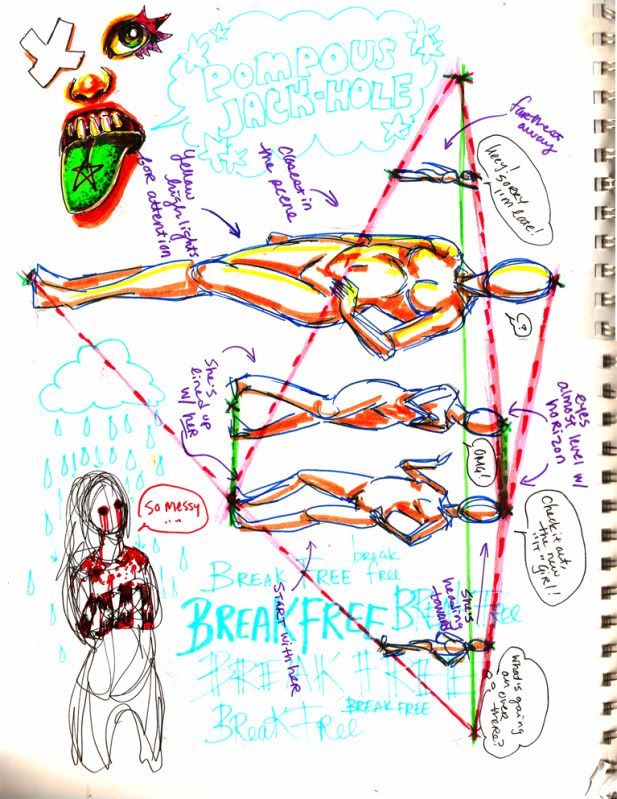 POMPOUS
JACK-HOLE
farthest
away
hey! sorry
I'm late!
closest in
the scene
Yellow
highlights
for attention
:?
She's
lined up
w/ her
eyes
almost level w/
horizon
OMG!
So messy
Check it out,
the new
"IT" girl!
break
free
BREAK FREE
BREAK FREE
BREAK FREE
BREAK FREE
BREAK FREE
BreaK Free
START with her
She's
heading
toward
What's going
on over
there?